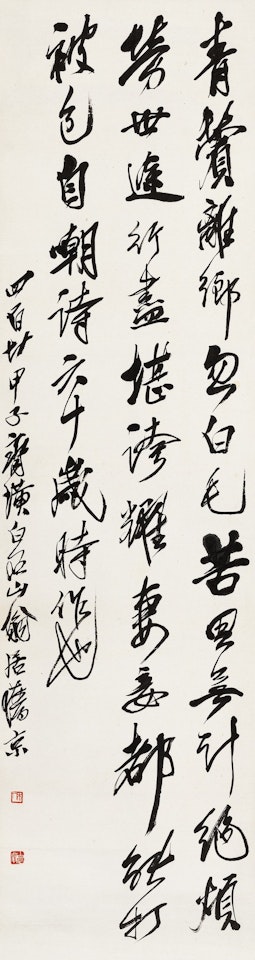 青鬢離鄉忽白毛苦思無計絕煩
勞世途行盡堪誇耀妻妾都能打
被包自嘲詩六十歲時作也
四百廿甲子齊璜白石山翁居舊京